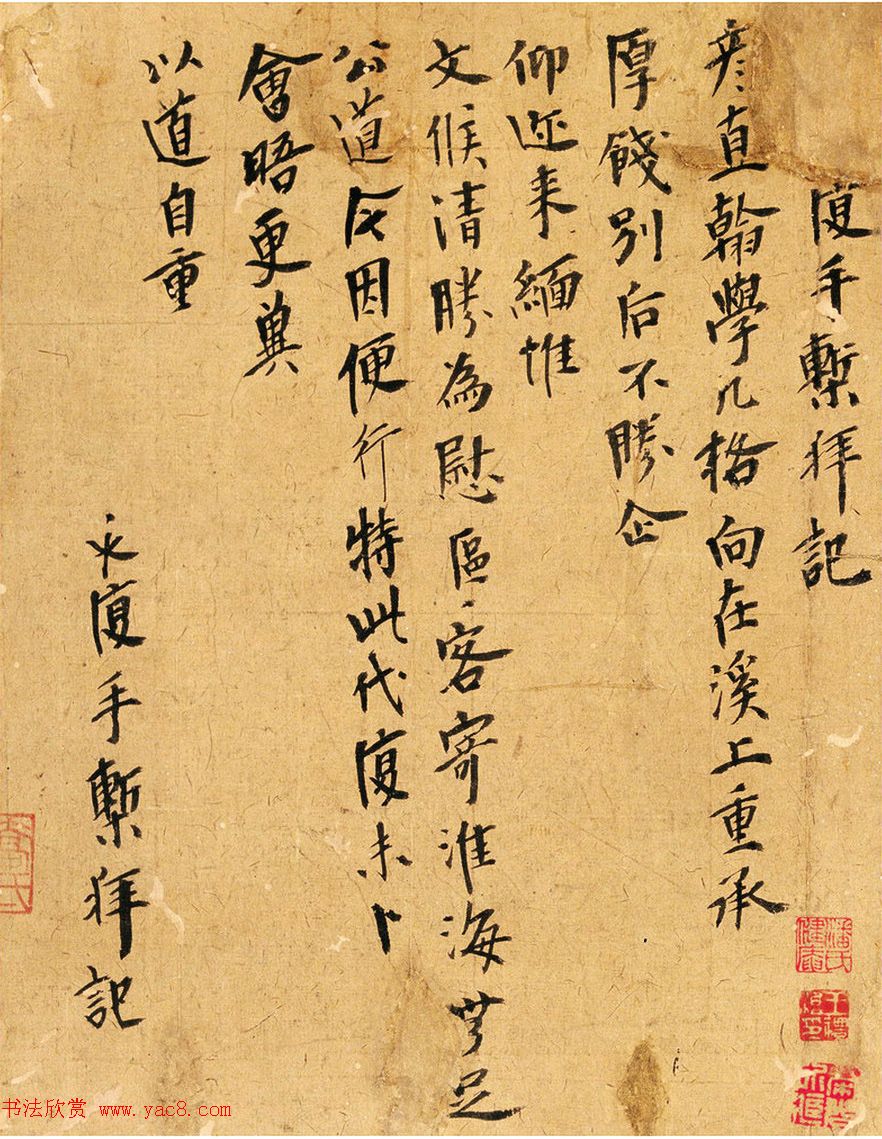 復手槧拜記
彥直翰學几格向在溪上重承
厚餞別后不勝企
仰邇来緬惟
文候清勝為慰區〻客寄淮海無足
公道今因便行特此代復未卜
會晤更冀
以道自重
永復手槧拜記
潘氏健庵
书法欣赏 www.yac8.com